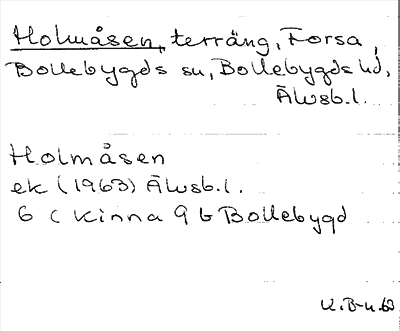 Holmåsen, terräng, Forsa,
Bollebygds sn, Bollebygds hd,
Älvsb.l.
Holmåsen
ek (1963) Älvsb.l.
6 C Kinna 9 b Bollebygd